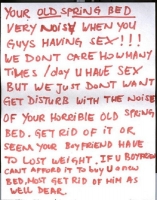 YOUR OLD SPRING BED
VERY NOISY WHEN YOU
GUYS HAVING SEX!!!
WE DONT CARE HOWMANY
TIMES/DAY U HAVE SEX
BUT WE JUST DONT WANT
GET DISTURB WITH THE NOISE
OF YOUR HORRIBLE OLD SPRING
BED. GET RID OF IT OR
SEEMA YOUR BOYFRIEND HAVE
TO LOST WEIGHT. IF U BOYFRIEND
CANT AFFORD IT TO BUY U A NEW
BED, MOST GET RID OF HIM AS
WELL DEAR.